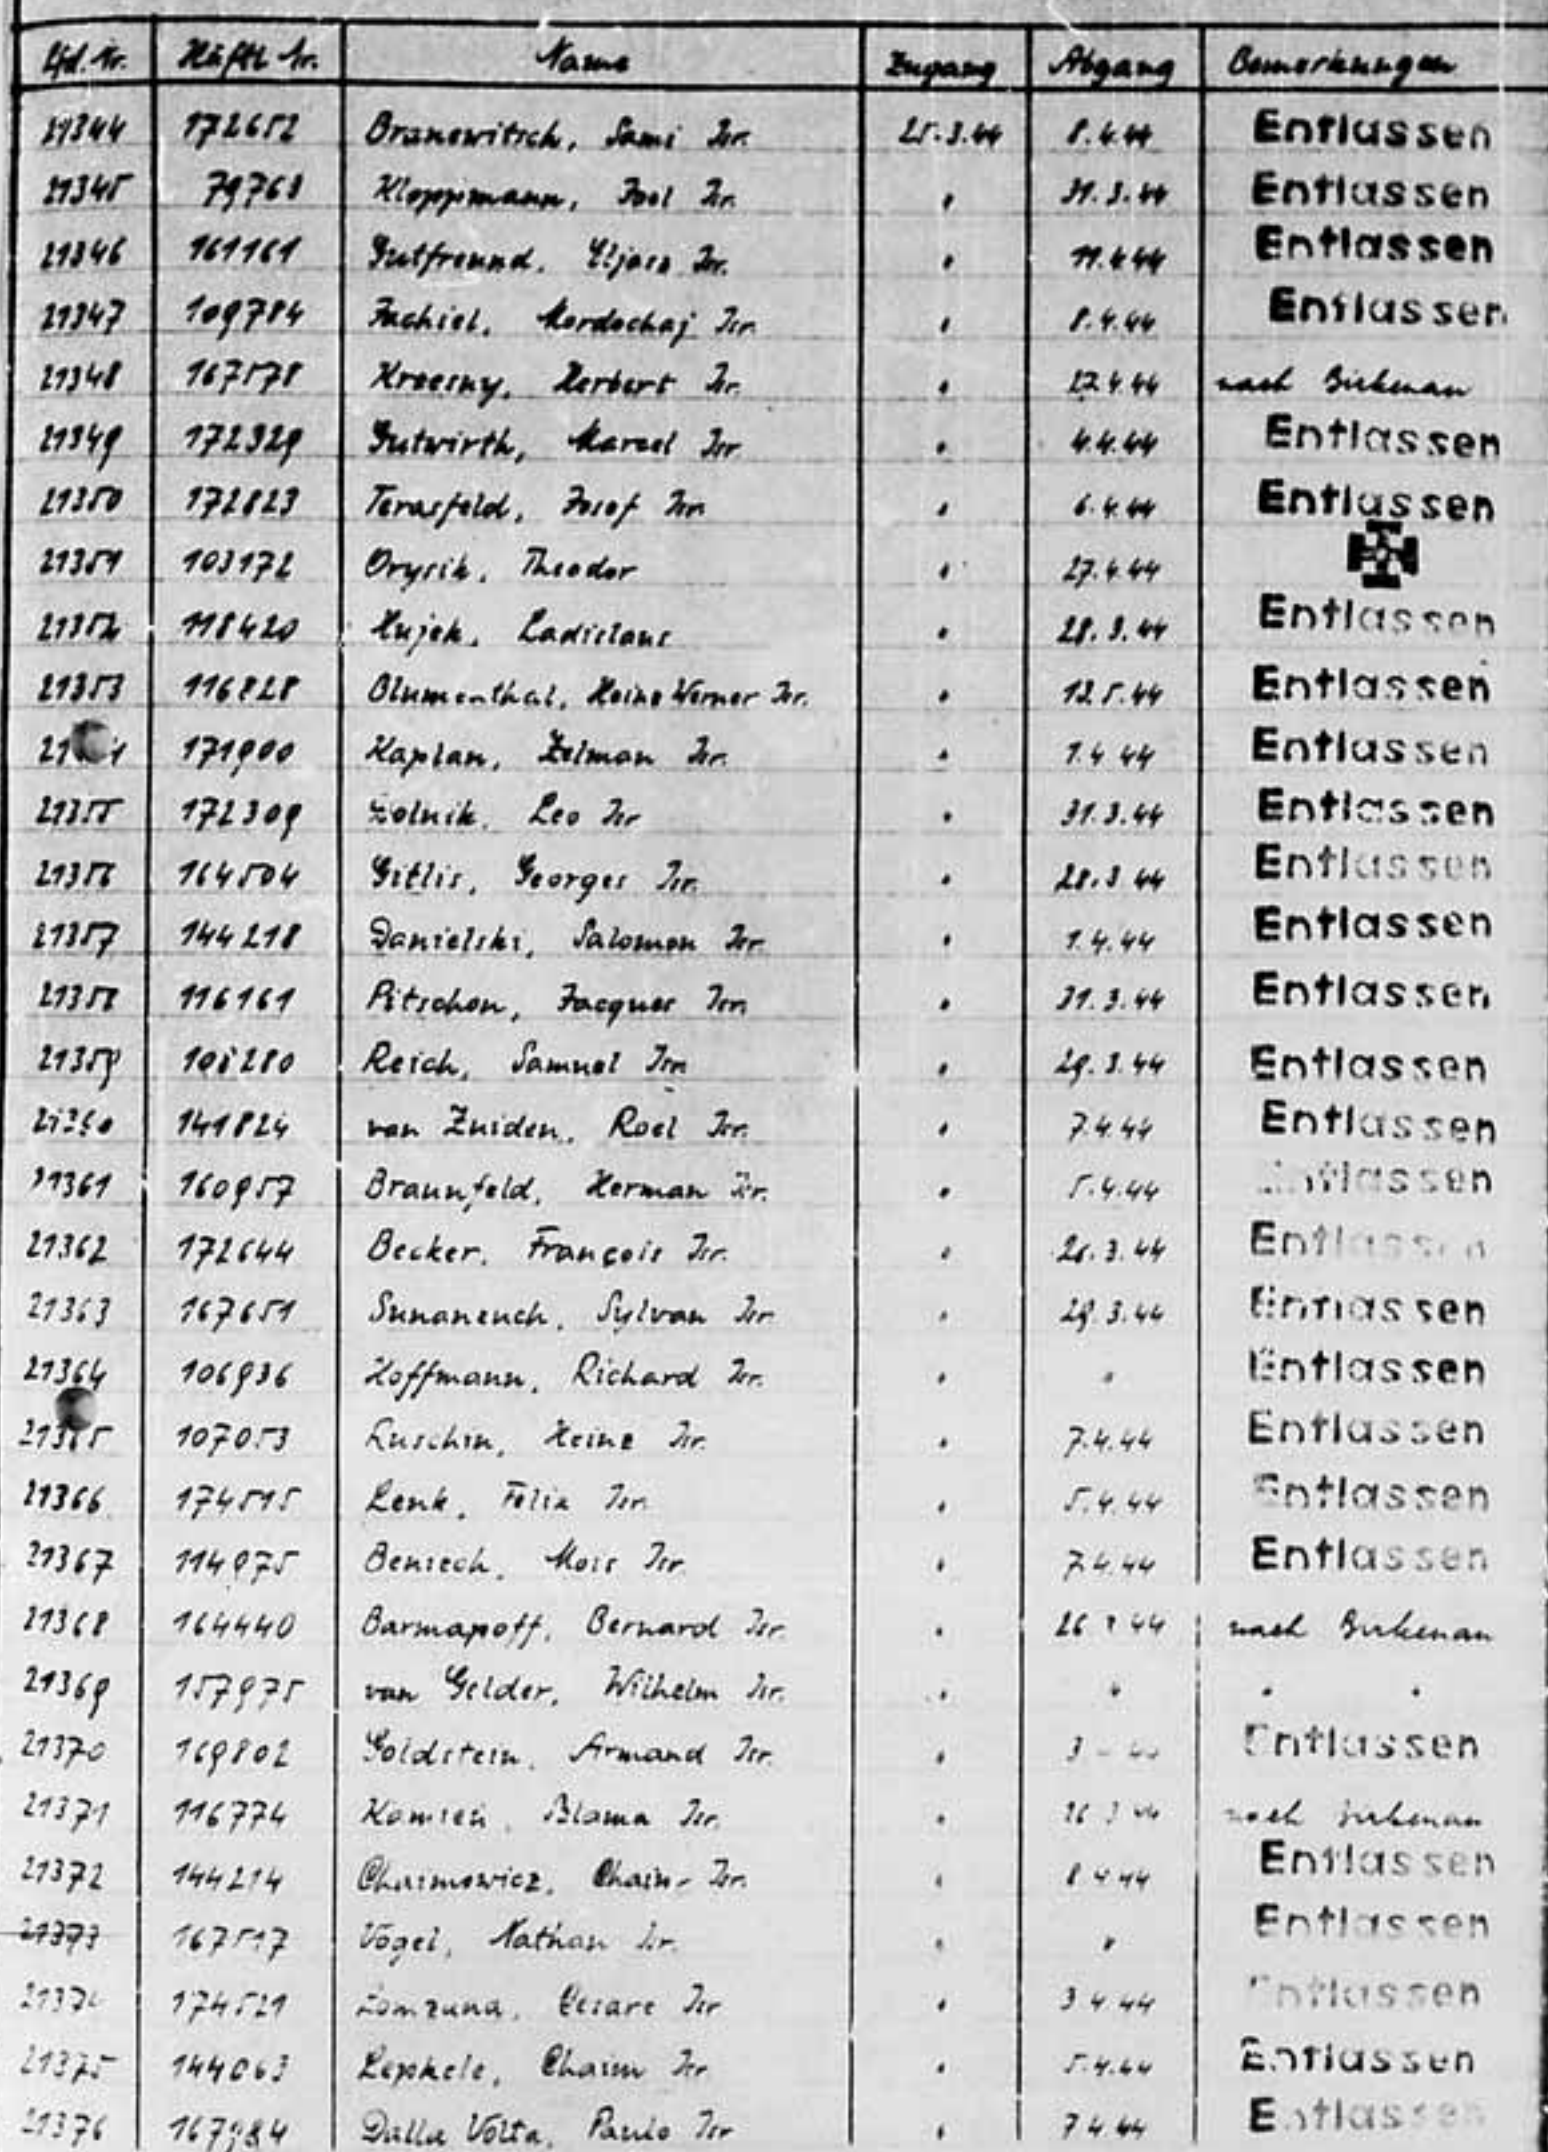 Lfd. Nr. Häftl Nr. Name Zugang Abgang Bemerkungen
21344 172652 Branowitsch, Sami Isr. 25.3.44 8.4.44 Entlassen
21345 79768 Kloppmann, Joel Isr. " 31.3.44 Entlassen
21346 161161 Gutfreund, Eljasz Isr. " 11.4.44 Entlassen
21347 109784 Jachiel, Mordochaj Isr. " 8.4.44 Entlassen
21348 167578 Kroesny, Herbert Isr. " 27.4.44 nach Birkenau
21349 172329 Gutwirth, Marcel Isr " 4.4.44 Entlassen
21350 172823 Terasfeld, Josef Isr. " 6.4.44 Entlassen
21351 103172 Orysik, Theodor " 27.4.44
21352 118420 Hujek, Ladislaus " 28.3.44 Entlassen
21353 116828 Blumenthal, Heinz Werner Isr. " 12.5.44 Entlassen
171900 Kaplan, Zelman Isr. " 1.4.44 Entlassen
21355 172309 Zolnik, Leo Isr " 31.3.44 Entlassen
21356 164504 Gitlis, Georges Isr. " 28.3.44 Entlassen
21357 144218 Danielski, Salomon Isr. " 1.4.44 Entlassen
21358 116161 Pitschon, Jacques Isr. " 31.3.44 Entlassen
21359 108280 Reich, Samuel Isr. " 29.3.44 Entlassen
21360 141824 van Zuiden, Roel Isr. " 7.4.44 Entlassen
21361 160957 Braunfeld, Herman Isr. " 5.4.44 Entlassen
21362 172644 Becker, François Isr. " 28.3.44 Entlassen
21363 167651 Sunanench, Sylvan Isr " 29.3.44 Entlassen
21364 106936 Hoffmann, Richard Isr. " " Entlassen
21365 107053 Luschin, Heinz Isr. " 7.4.44 Entlassen
21366 174515 Lenk, Felix Isr. " 5.4.44 Entlassen
21367 114975 Benzech, Mois Isr. " 7.4.44 Entlassen
21368 164440 Barmapoff, Bernard Isr. " 26.3.44 nach Birkenau
21369 157975 van Gelder, Wilhelm Isr. " " " "
21370 169802 Goldstein, Armand Isr. " Entlassen
21371 116774 Blama Isr. " 26.3.44 nach Birkenau
21372 144214 Chaimowicz, Chaim Isr. " 8.4.44 Entlassen
21373 167517 Vogel, Nathan Isr. " " Entlassen
21374 174521 Cesare Isr " 3.4.44 Entlassen
21375 144063 Lepkele, Chaim Isr " 5.4.44 Entlassen
21376 167984 Dalla Volta, Paulo Isr " 7.4.44 Entlassen